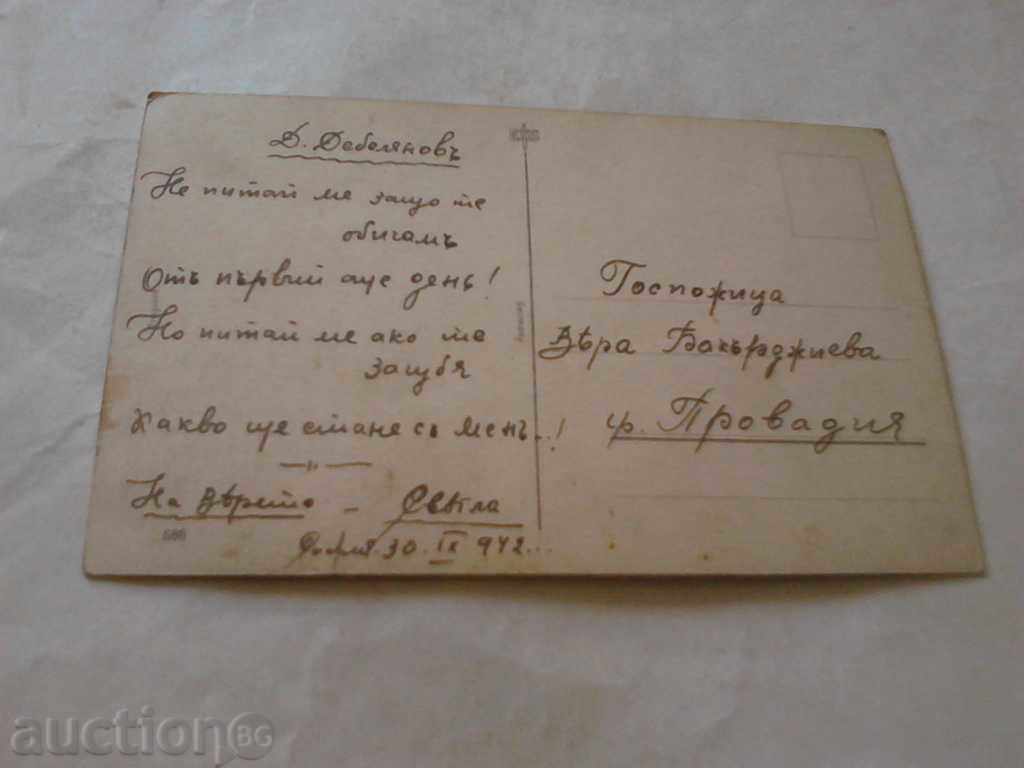 Д. Дебеляновъ
Не питай ме защо те
обичамъ
Отъ първий още день!
Но питай ме ако те
загубя
Какво ще стане съ менъ...!
—"—
На Вѣрето – Свѣтла
София 30. IX 942...
586
Госпожица
Вѣра Бакърджиева
гр. Провадия
auction BG